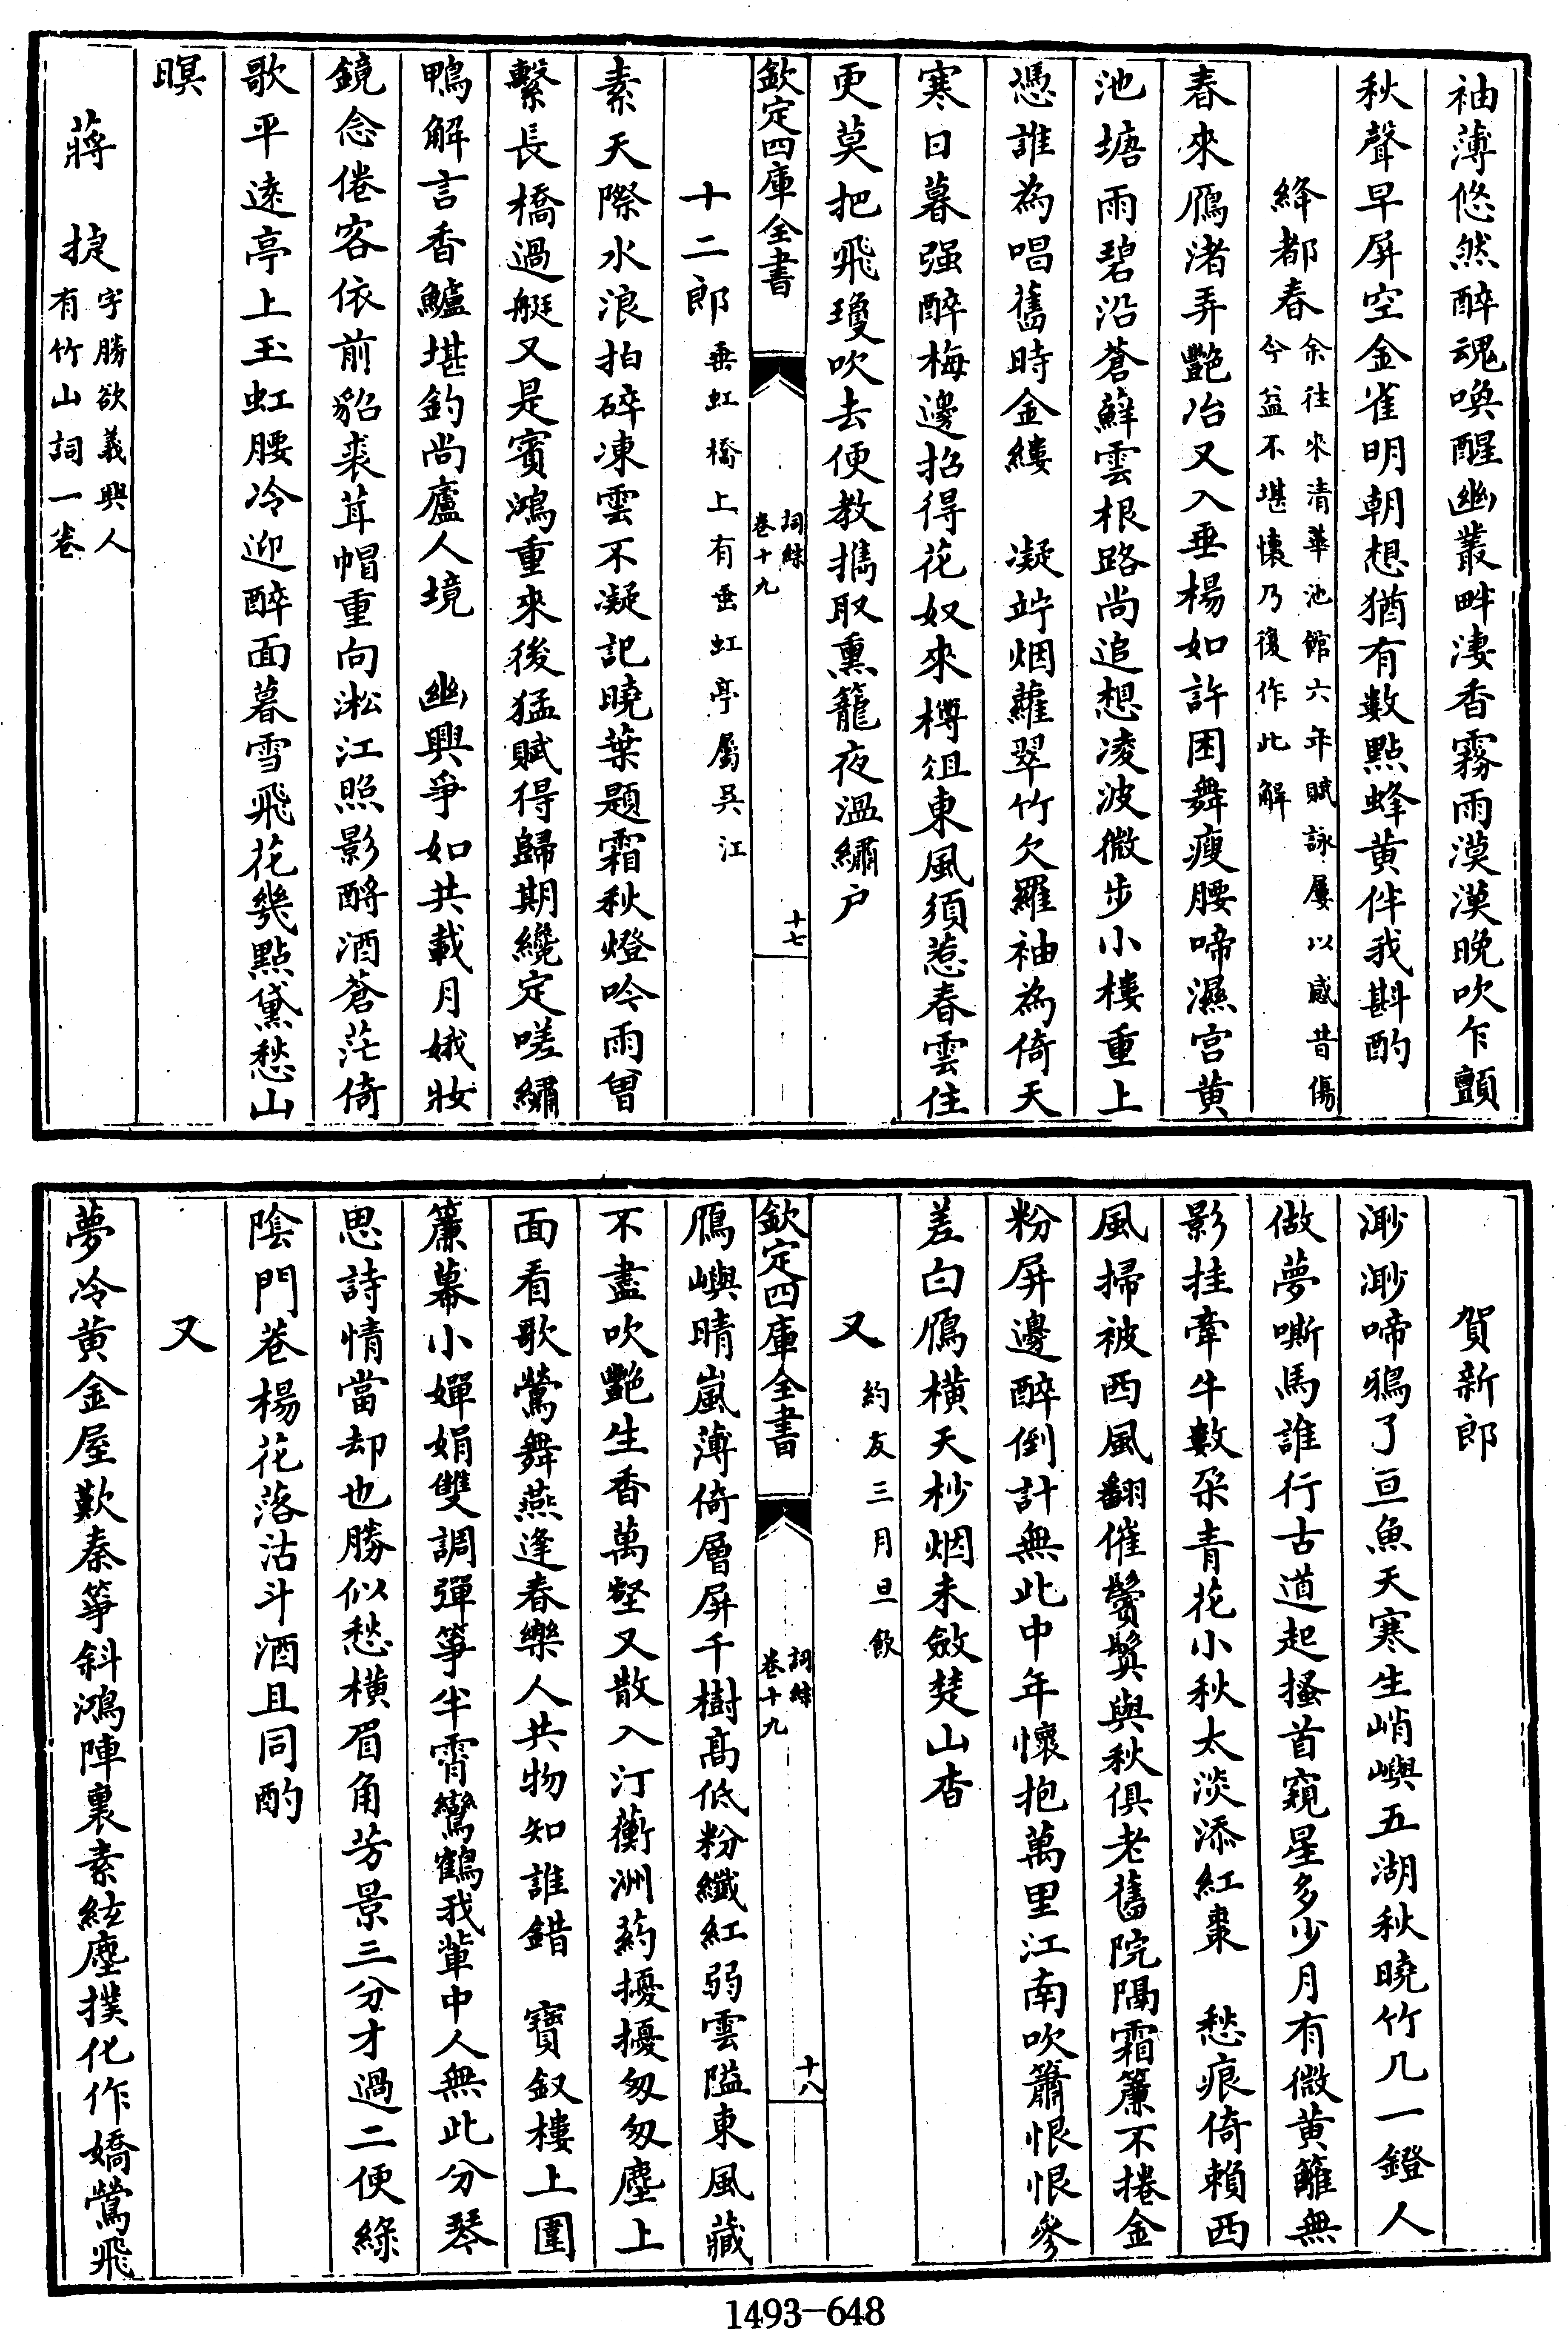 袖薄悠然醉魂喚醒幽叢畔淒香霧雨漠漠晚吹乍顫
秋聲早屏空金雀明朝想猶有數點蜂黄伴我斟酌
絳都春余往來清華池館六年賦詠屢以感昔傷
今益不堪懷乃復作此解
春來鴈渚弄艷冶又入垂楊如許困舞瘦腰啼濕宮黄
池塘雨碧沿蒼蘚雲根路尚追想凌波微步小樓重上
憑誰為唱舊時金縷　凝竚烟蘿翠竹欠羅袖為倚天
寒日暮强醉梅邊招得花奴來樽俎東風須惹春雲住
更莫把飛瓊吹去便教攜取熏籠夜溫繡户
欽定四庫全書
詞綜
卷十九
十七
十二郎垂虹橋上有垂虹亭屬吳江
素天際水浪拍碎凍雲不凝記曉葉題霜秋燈吟雨曾
繫長橋過艇又是賓鴻重來後猛賦得歸期纔定嗟繡
鴨解言香鱸堪釣尚廬人境　幽興爭如共載月娥妝
鏡念倦客依前貂裘茸帽重向淞江照影酹酒蒼茫倚
歌平逺亭上玉虹腰冷迎醉面暮雪飛花幾點黛愁山
暝
蔣　捷字勝欲義興人
有竹山詞一卷
賀新郎
渺渺啼鴉了亘魚天寒生峭嶼五湖秋曉竹几一鐙人
做夢嘶馬誰行古道起搔首窺星多少月有微黄籬無
影挂牽牛數朶青花小秋太淡添紅棗　愁痕倚賴西
風掃被西風翻催鬢鬒與秋俱老舊院隔霜簾不捲金
粉屏邊醉倒計無此中年懷抱萬里江南吹簫恨恨參
差白鴈横天杪烟未斂楚山杳
又約友三月旦飲
欽定四庫全書
詞綜
卷十九
十八
鴈嶼晴嵐薄倚層屏千樹髙低粉纖紅弱雲隘東風藏
不盡吹艷生香萬壑又散入汀蘅洲葯擾擾匆匆塵上
面看歌鶯舞燕逢春樂人共物知誰錯　寶釵樓上圍
簾幕小嬋娟雙調彈箏半霄鸞鶴我輩中人無此分琴
思詩情當却也勝似愁横眉角芳景三分才過二便綠
陰門巷楊花落沽斗酒且同酌
又
夢冷黄金屋歎秦箏斜鴻陣裏素絃塵撲化作嬌鶯飛
1493-648